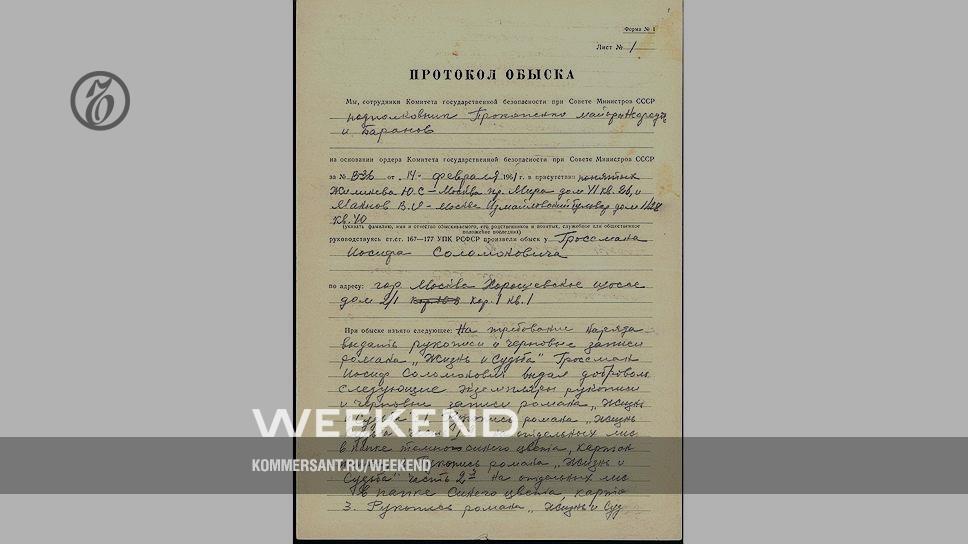 Форма № 1
Лист № 1
ПРОТОКОЛ ОБЫСКА
Мы, сотрудники Комитета государственной безопасности при Совете Министров СССР
подполковник Прокопенко майоры Нефедов
и Баранов
на основании ордера Комитета государственной безопасности при Совете Министров СССР
за № В-36 от „14“ февраля 1961 г. в присутствии понятых
Ю.С – Москва пр. Мира дом 41 кв. и
В.И – Москва Измайловский бульвар дом
кв. 40
(указать фамилию, имя и отчество обыскиваемого, его родственников и понятых, служебное или общественное
положение последних)
руководствуясь ст.ст. 167—177 УПК РСФСР произвели обыск у Гроссмана
Иосифа Соломоновича
по адресу: гор. Москва Хорошевское шоссе
дом 2/1 кор. 1 кв. 1
При обыске изъято следующее: На требование наряда
выдать рукописи и черновые записи
романа „Жизнь и Судьба“ Гроссман
Иосиф Соломонович выдал добровольн
следующие экземпляры рукописи
и черновые записи романа „Жизнь
и Судьба“ 1. Рукопись романа „Жизнь
отдельных лис
в папке темно синего цвета, картон
Рукопись романа „Жизнь и
Судьба“ часть 2я на отдельных лис
в папке синего цвета, карто
3. Рукопись романа „Жизнь и Суд
WEEKEND
KOMMERSANT.RU/WEEKEND